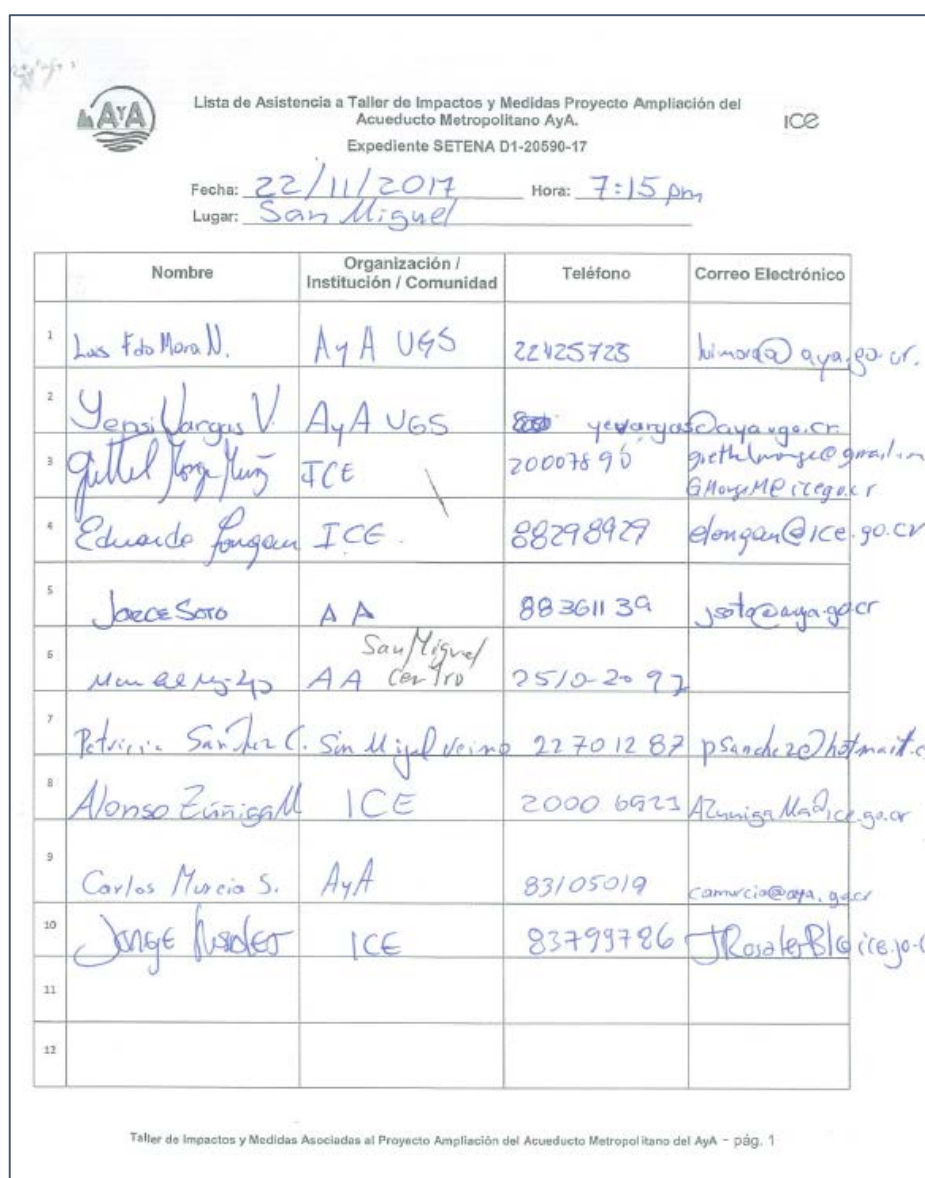 AyA
Lista de Asistencia a Taller de Impactos y Medidas Proyecto Ampliación del
Acueducto Metropolitano AyA.
ice
Expediente SETENA D1-20590-17
Fecha: 22/11/2017 Hora: 7:15 pm
Lugar: San Miguel
Nombre Organización / Institución / Comunidad Teléfono Correo Electrónico
1 Luis Fdo Mora N. AyA UGS 22425725 luimora@aya.go.cr.
2 Yensi Vargas V. AyA UGS yevargas@aya.go.cr
3 Monge ICE
4 Eduardo ICE. 88298929 elongan@ice.go.cr
5 Jorge Soto AA 88361139 jsoto@aya.go.cr
6 AA San Miguel Centro 2510-2097
7 Patricia Sánchez C. San Miguel 22701287
8 Alonso Zúñiga M ICE 2000 6921 AZunigaMa@ice.go.cr
9 Carlos Murcia S. AyA 83105019 camurcia@aya.go.cr
10 Jorge Rosales ICE 83799786
11
12
Taller de Impactos y Medidas Asociadas al Proyecto Ampliación del Acueducto Metropolitano del AyA - pág. 1